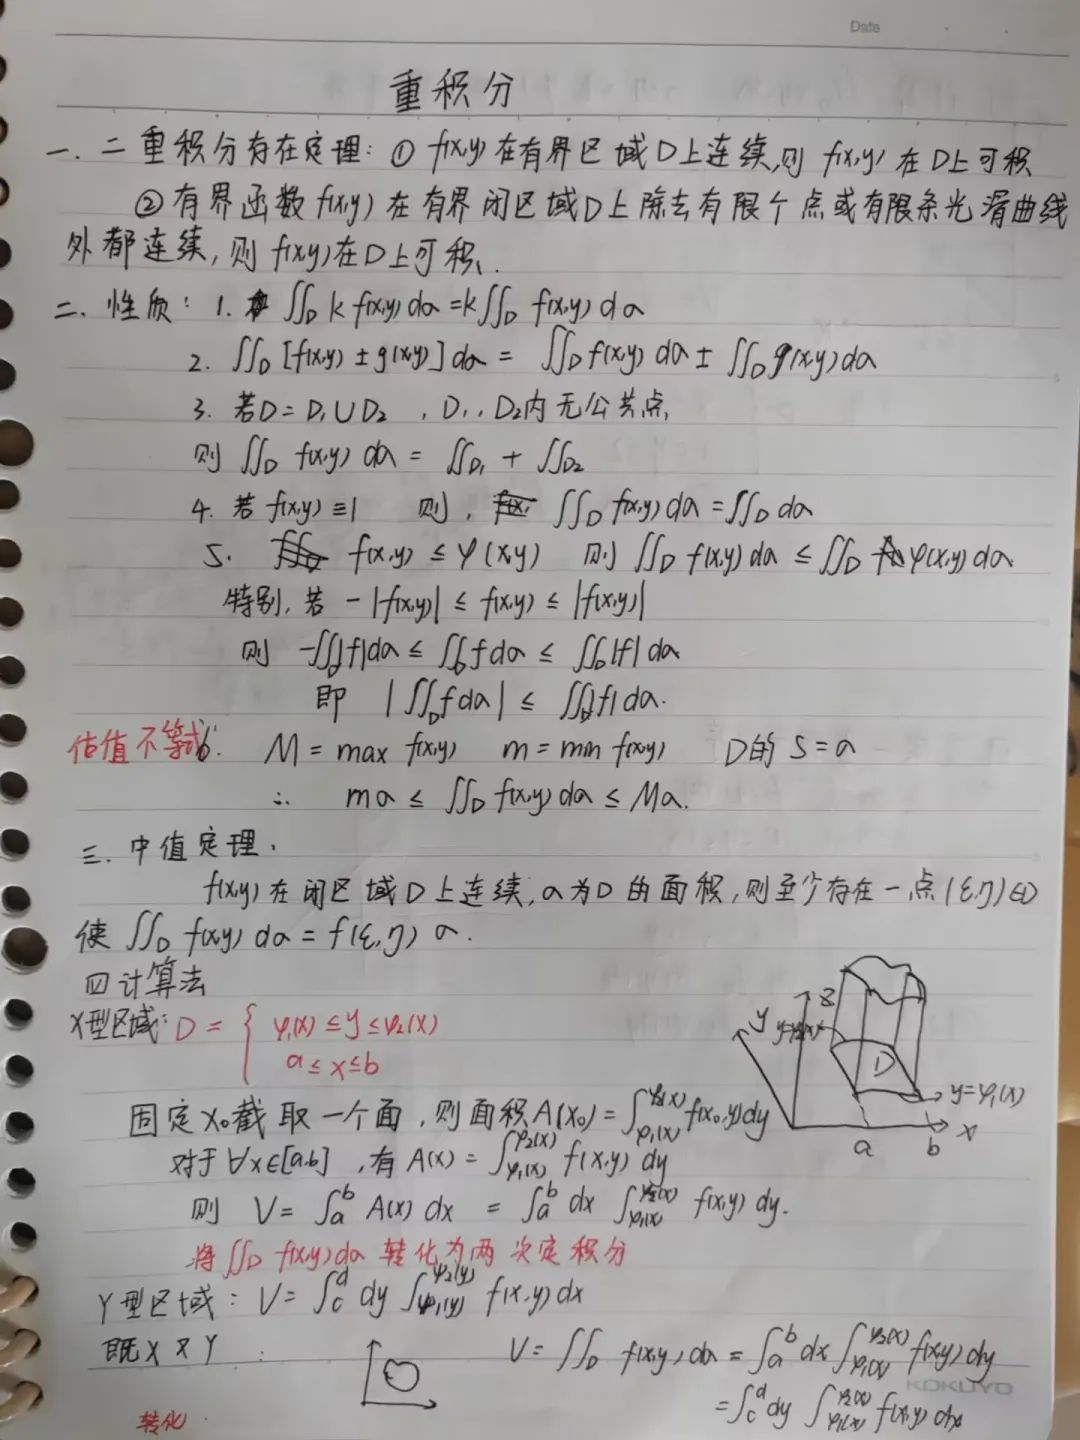 Date
重积分
一. 二重积分存在定理: ① f(x,y) 在有界区域D上连续,则 f(x,y) 在D上可积
② 有界函数 f(x,y) 在有界闭区域D上除去有限个点或有限条光滑曲线
外都连续,则 f(x,y)在D上可积.
二. 性质: 1. ∬_D k f(x,y) dσ = k∬_D f(x,y) dσ
2. ∬_D [f(x,y) ± g(x,y)] dσ = ∬_D f(x,y) dσ ± ∬_D g(x,y) dσ
3. 若D = D₁∪D₂ , D₁, D₂内无公共点,
则 ∬_D f(x,y) dσ = ∬_D₁ + ∬_D₂
4. 若 f(x,y) ≡ 1 则, ∬_D f(x,y) dσ = ∬_D dσ
5. f(x,y) ≤ φ(x,y) 则 ∬_D f(x,y) dσ ≤ ∬_D φ(x,y) dσ
特别, 若 -|f(x,y)| ≤ f(x,y) ≤ |f(x,y)|
则 -∬_D|f|dσ ≤ ∬_D f dσ ≤ ∬_D |f| dσ
即 |∬_D f dσ| ≤ ∬_D |f| dσ.
估值不等式 6. M = max f(x,y) m = min f(x,y) D的 S = σ
∴ mσ ≤ ∬_D f(x,y) dσ ≤ Mσ.
三. 中值定理.
f(x,y) 在闭区域D上连续, σ为D的面积, 则至少存在一点(ξ,η)∈D
使 ∬_D f(x,y) dσ = f(ξ,η) σ.
四 计算法
X型区域: D = { φ₁(x) ≤ y ≤ φ₂(x)
a ≤ x ≤ b
z
y
y=φ₂(x)
D
y=φ₁(x)
a b x
固定x₀截取一个面, 则面积A(x₀) = ∫_{φ₁(x)}^{φ₂(x)} f(x₀,y) dy
对于 ∀x∈[a,b] , 有 A(x) = ∫_{φ₁(x)}^{φ₂(x)} f(x,y) dy
则 V = ∫_a^b A(x) dx = ∫_a^b dx ∫_{φ₁(x)}^{φ₂(x)} f(x,y) dy.
将 ∬_D f(x,y) dσ 转化为两次定积分
Y型区域: V = ∫_c^d dy ∫_{ψ₁(y)}^{ψ₂(y)} f(x,y) dx
既X又Y : V = ∬_D f(x,y) dσ = ∫_a^b dx ∫_{φ₁(x)}^{φ₂(x)} f(x,y) dy
KOKUYO
= ∫_c^d dy ∫_{φ₁(x)}^{φ₂(x)} f(x,y) dx
转化